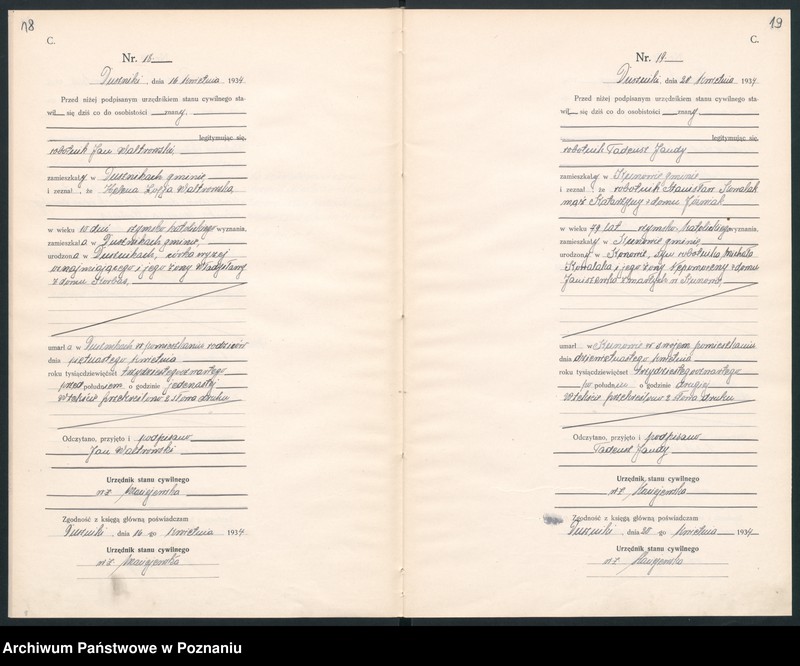 18
C.
Nr. 18
Duszniki, dnia 16 kwietnia 1934
Przed niżej podpisanym urzędnikiem stanu cywilnego sta-
wił się dziś co do osobistości znany,
legitymując się,
robotnik Jan Waltrowski,
zamieszkały w Dusznikach gminie
i zeznał, że Helena Waltrowska
w wieku dni rzymsko katolickiego wyznania,
zamieszkała w Dusznikach gminie,
urodzona w Dusznikach, córka wyżej
oznajmiającego i jego żony Władysławy
z domu
umarła w Dusznikach w pomieszkaniu rodziców
dnia kwietnia
roku tysiącdziewięćset trzydziestegoczwartego
przed południem o godzinie jedenastej
W tekście przekreślono 2 słowa druku
Odczytano, przyjęto i podpisano
Jan Waltrowski
Urzędnik stanu cywilnego
w z.
Zgodność z księgą główną poświadczam
Duszniki, dnia 16 -go kwietnia 1934
Urzędnik stanu cywilnego
w z.
19
C.
Nr. 19
Duszniki, dnia 20 kwietnia 1934
Przed niżej podpisanym urzędnikiem stanu cywilnego sta-
wił się dziś co do osobistości znany,
legitymując się,
robotnik Tadeusz Jandy
zamieszkały w gminie
i zeznał, że robotnik Stanisław Kowalak
mąż Katarzyny z domu
w wieku 79 lat rzymsko katolickiego wyznania,
zamieszkały w gminie,
urodzony w syn robotnika Michała
Kowalaka i jego żony z domu
zmarłych w
umarł w w swojem pomieszkaniu
dnia dziewiętnastego kwietnia
roku tysiącdziewięćset trzydziestegoczwartego
po południu o godzinie drugiej
W tekście przekreślono 2 słowa druku
Odczytano, przyjęto i podpisano
Tadeusz Jandy
Urzędnik stanu cywilnego
w z.
Zgodność z księgą główną poświadczam
Duszniki, dnia 20 -go kwietnia 1934
Urzędnik stanu cywilnego
w z.
Archiwum Państwowe w Poznaniu